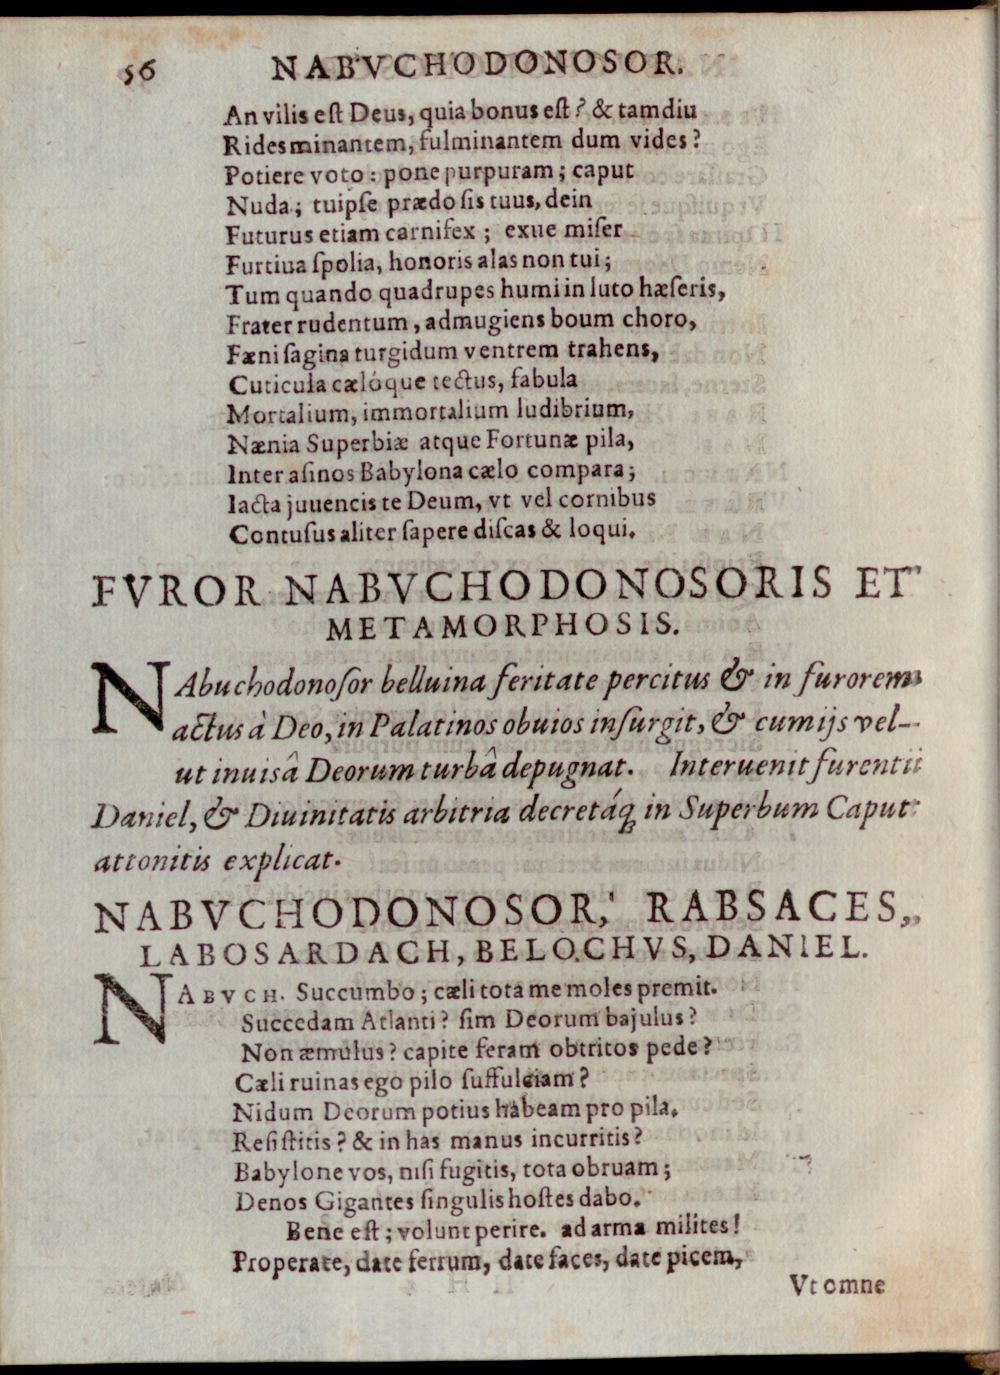 56 NABVCHODONOSOR.
An vilis eſt Deus, quia bonus eſt? & tamdiu
Rides minantem, fulminantem dum vides?
Potiere voto: pone purpuram; caput
Nuda; tuipſe prædo ſis tuus, dein
Futurus etiam carnifex; exue miſer
Furtiua ſpolia, honoris alas non tui;
Tum quando quadrupes humi in luto hæſeris,
Frater rudentum, admugiens boum choro,
Fæni ſagina turgidum ventrem trahens,
Cuticula cælóque tectus, fabula
Mortalium, immortalium ludibrium,
Nænia Superbiæ atque Fortunæ pila,
Inter aſinos Babylona cælo compara;
Iacta juuencis te Deum, vt vel cornibus
Contuſus aliter ſapere diſcas & loqui.
FVROR NABVCHODONOSORIS ET
METAMORPHOSIS.
NAbuchodonoſor belluina feritate percitus & in furorem
actus à Deo, in Palatinos obuios inſurgit, & cum ijs vel-
ut inuisâ Deorum turbâ depugnat. Interuenit furentii
Daniel, & Diuinitatis arbitria decretáq; in Superbum Caput
attonitis explicat.
NABVCHODONOSOR, RABSACES,
LABOSARDACH, BELOCHVS, DANIEL.
NABVCH. Succumbo; cæli tota me moles premit.
Succedam Atlanti? ſim Deorum bajulus?
Non æmulus? capite feram obtritos pede?
Cæli ruinas ego pilo ſuffulciam?
Nidum Deorum potius habeam pro pila.
Reſiſtitis? & in has manus incurritis?
Babylone vos, niſi fugitis, tota obruam;
Denos Gigantes ſingulis hoſtes dabo.
Bene eſt; volunt perire. ad arma milites!
Properate, date ferrum, date faces, date picem,
Vt omne